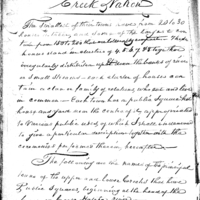 Creek Nation
The smallest of their towns have from 20 to 30
houses in them, and some of the largest con
tain from 150 to 200
These
houses stand in clusters of 4, 5, 6, 7, 8 together
irregularly distributed up & down the banks of rivers
or small streams each cluster of houses con
tain a clan or family of relations, who eat and live
in common Each town has a public Square, hot
house and yard near the centre of the
to various public uses, of which I shall endeavour
to give a particular description together with the
ceremonies performed therein, hereafter
The following are the names of the principal
towns of the upper and lower Creeks that have
Public Squares, beginning at the head of the